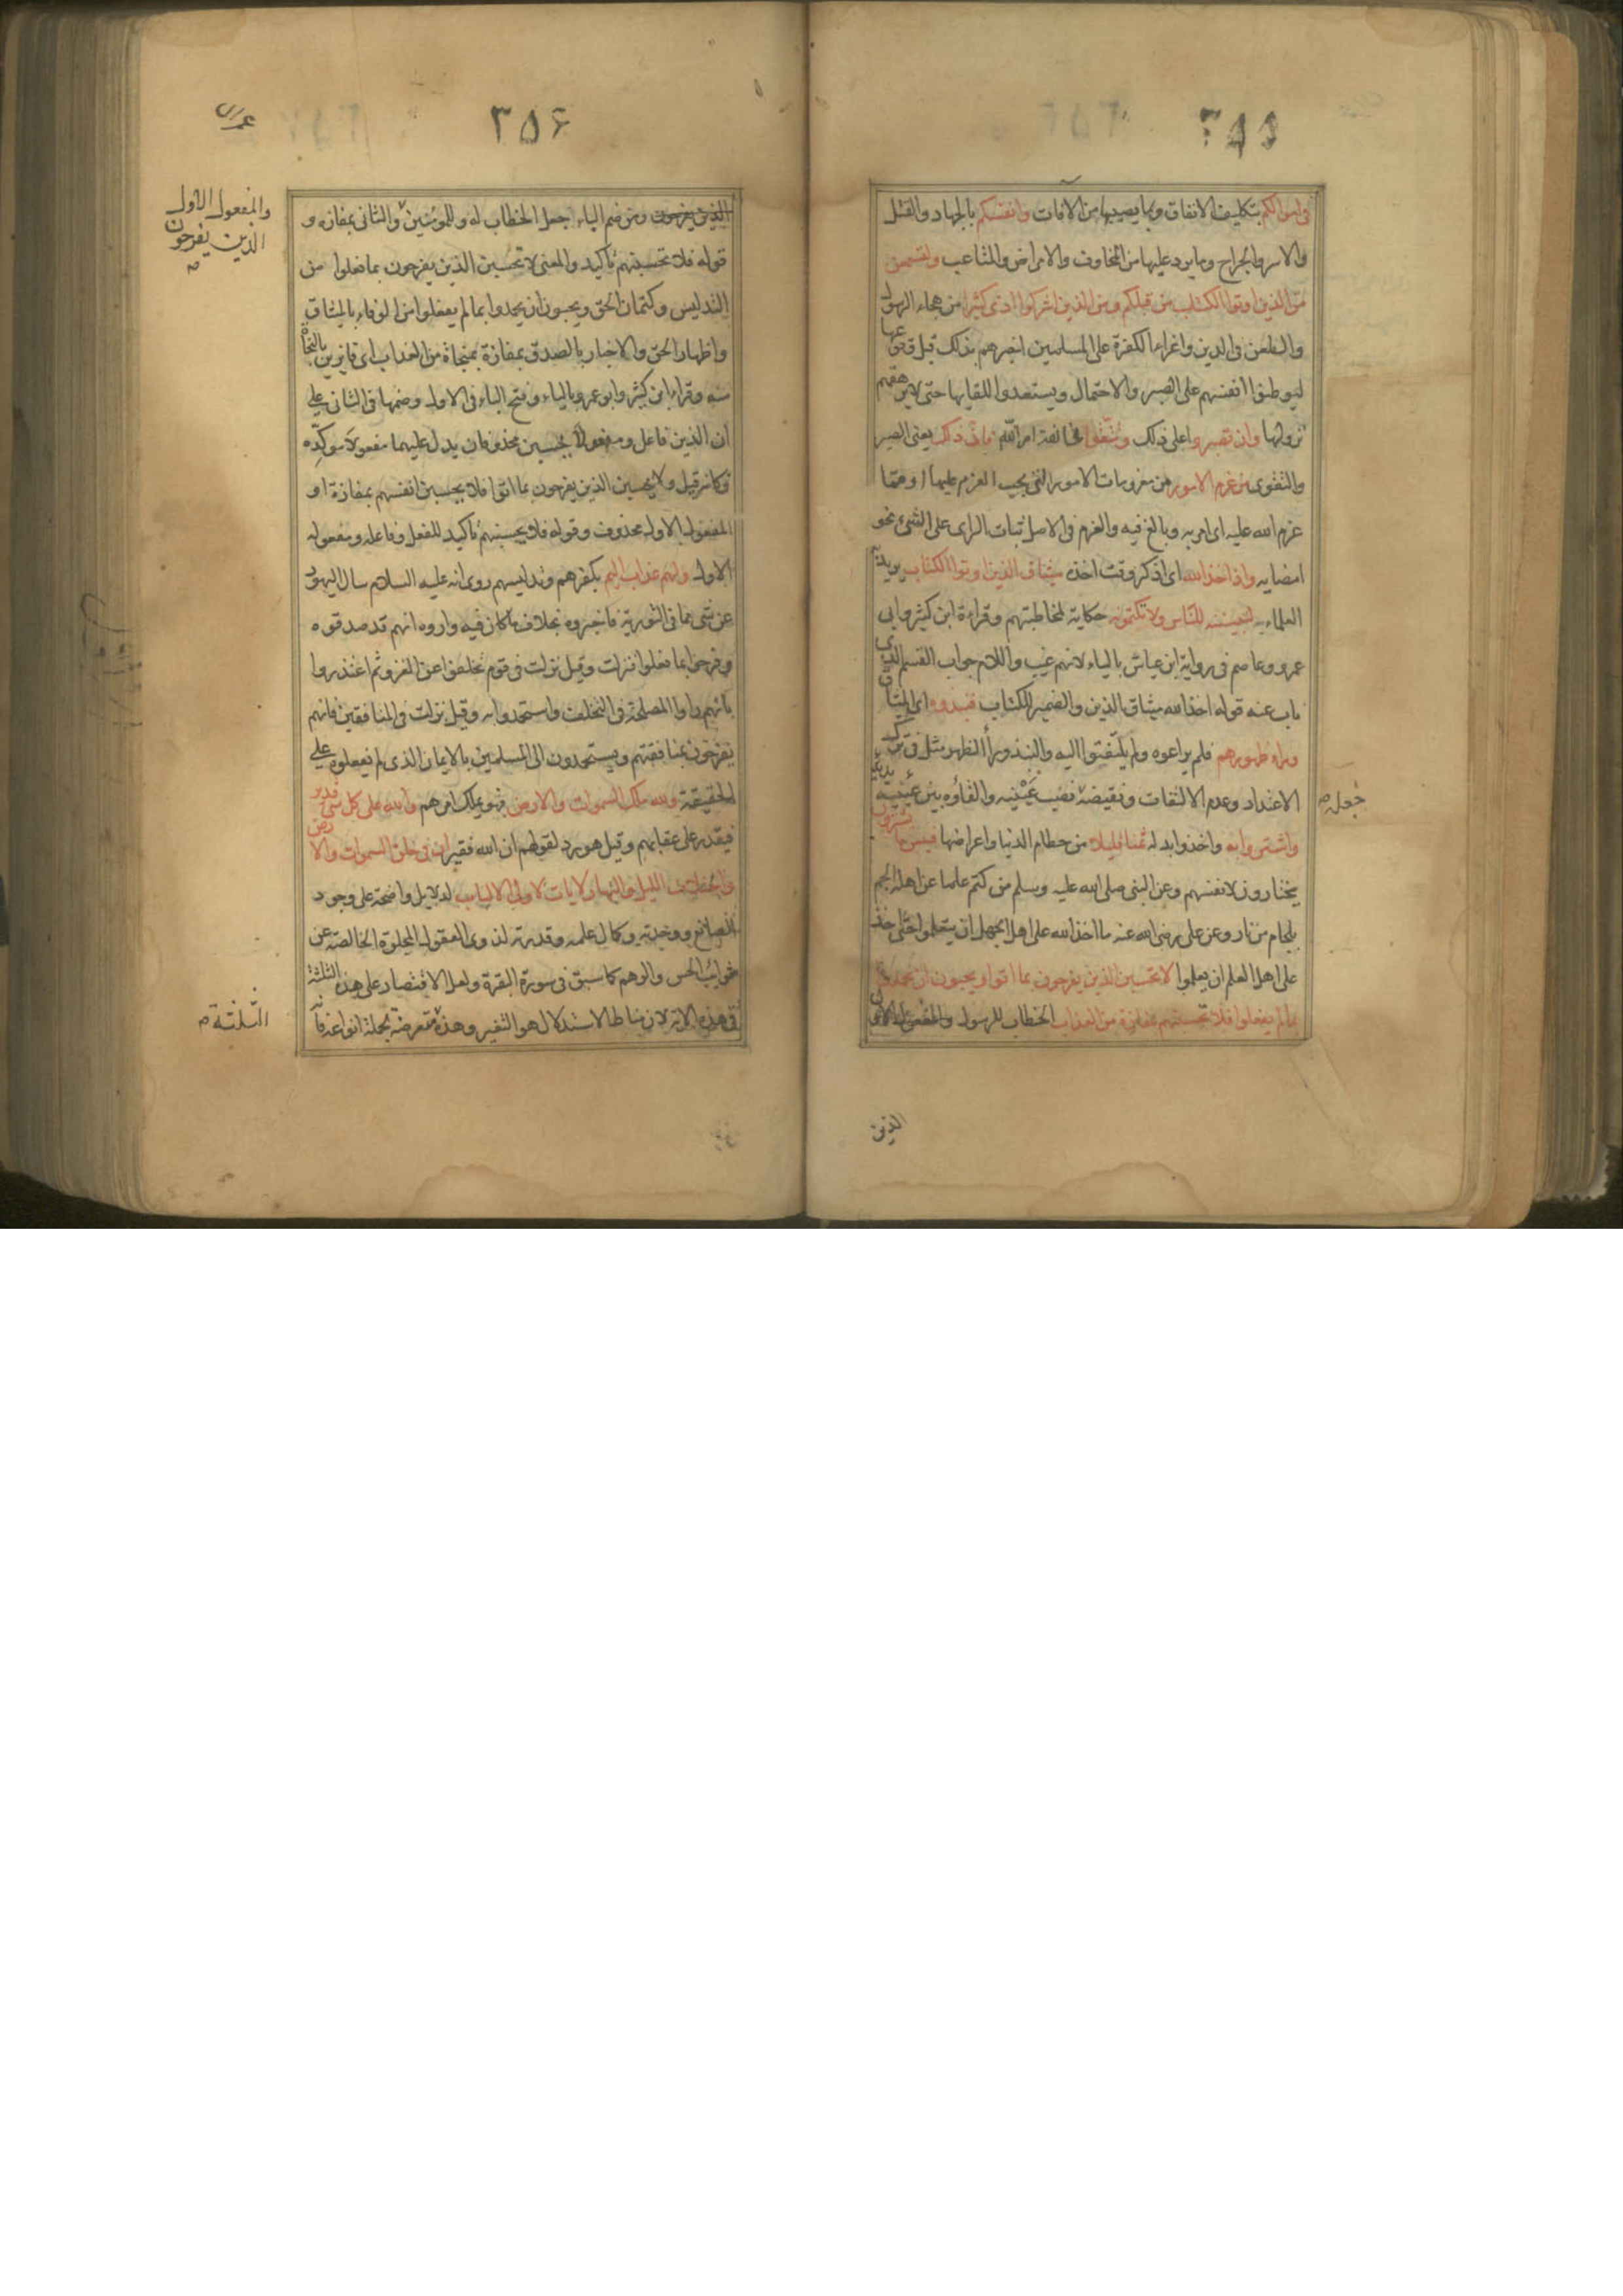 ٣٥٥
فى اموالكم بتكليف الانفاق وما يصيبها من الافات وانفسكم بالجهاد والقتل
والاسر والجراح وما يرد عليها من المخاوف والامراض والمتاعب ولتسمعن
من الذين اوتوا الكتاب من قبلكم ومن الذين اشركوا اذى كثيرا من هجاء الرسول
والطعن فى الدين واغراء الكفرة على المسلمين اخبرهم بذلك قبل وقوعها
ليوطنوا انفسهم على الصبر والاحتمال ويستعدوا للقايها حتى لا يرهقهم
نزولها وان تصبروا على ذلك وتتقوا مخالفة امر الله فان ذلك يعنى الصبر
والتقوى من عزم الامور من معزومات الامور التى يجب العزم عليها او مما
عزم الله عليه اى امر به وبالغ فيه والعزم فى الاصل ثبات الراى على الشئ نحو
امضايه واذ اخذ الله اى اذكر وقت اخذه ميثاق الذين اوتوا الكتاب يريد به
العلماء به لتبيننه للناس ولا تكتمونه حكاية لمخاطبتهم وقراءة ابن كثير وابى
عمرو وعاصم فى رواية ابن عياش بالياء لانهم غيب واللام جواب القسم الذى
ناب عنه قوله اخذ الله ميثاق الذين والضمير للكتاب فنبذوه اى الميثاق
وراء ظهورهم فلم يراعوه ولم يلتفتوا اليه والنبذ وراء الظهر مثل فى ترك
الاعتداد وعدم الالتفات ونقيضه نصب عينيه والقاؤه بين عينيه
جعله ص
واشتروا به واخذوا بدله ثمنا قليلا من حطام الدنيا واعراضها فبئس ما يشترون
يختارون لانفسهم وعن النبى صلى الله عليه وسلم من كتم علما عن اهله الجم
بلجام من نار وعن على رضى الله عنه ما اخذ الله على اهل الجهل ان يتعلموا حتى اخذ
على اهل العلم ان يعلموا لا تحسبن الذين يفرحون بما اتوا ويحبون ان يحمدوا
بما لم يفعلوا فلا تحسبنهم بمفازة من العذاب الخطاب للرسول والمفعول الاول
الذين
عمران
٣٥۶
والمفعول الاول
الذين يفرحون
ص
الذين يفرحون ومن ضم الباء جعل الخطاب له وللمؤمنين والثانى بمفازه و
قوله فلا تحسبنهم تاكيد والمعنى لا تحسبن الذين يفرحون بما فعلوا من
التدليس وكتمان الحق ويحبون ان يحمدوا بما لم يفعلوا من الوفاء بالميثاق
واظهار الحق والاخبار بالصدق بمفازة بمنجاة من العذاب اى فايزين بالنجاة
منه وقراء ابن كثير وابو عمرو بالياء وفتح الباء فى الاول وضمها فى الثانى على
ان الذين فاعل ومفعولا يحسبن محذوفان يدل عليهما مفعولا موكده
فكانه قيل ولا يحسبن الذين يفرحون بما اتوا فلا يحسبن انفسهم بمفازة او
المفعول الاول محذوف وقوله فلا يحسبنهم تاكيد للفعل وفاعله ومفعوله
الاول ولهم عذاب اليم بكفرهم وتدليسهم روى انه عليه السلام سال اليهود
عن شى مما فى التورية فاخبروه بخلاف ما كان فيه واروه انهم قد صدقوه
وفرحوا بما فعلوا فنزلت وقيل نزلت فى قوم تخلفوا عن الغزو ثم اعتذروا
بانهم راوا المصلحة فى التخلف واستحمدوا به وقيل نزلت فى المنافقين فانهم
يفرحون بمنافقتهم ويستحمدون الى المسلمين بالايمان الذى لم يفعلوه على
الحقيقة ولله ملك السموات والارض فهو يملك امرهم والله على كل شى قدير
فيقدر على عقابهم وقيل هو رد لقولهم ان الله فقير ان فى خلق السموات والارض
واختلاف الليل والنهار لايات لاولى الالباب لدلايل واضحة على وجود
الصانع ووحدته وكمال علمه وقدرته لذوى العقول المجلوة الخالصة عن
شوائب الحس والوهم كما سبق فى سورة البقرة ولعل الاقتصار على هذه الثلثة
الثلثة ص
فى هذه الاية لان مناط الاستدلال هو التغير وهذه متعرضة لجملة انواعه فانه